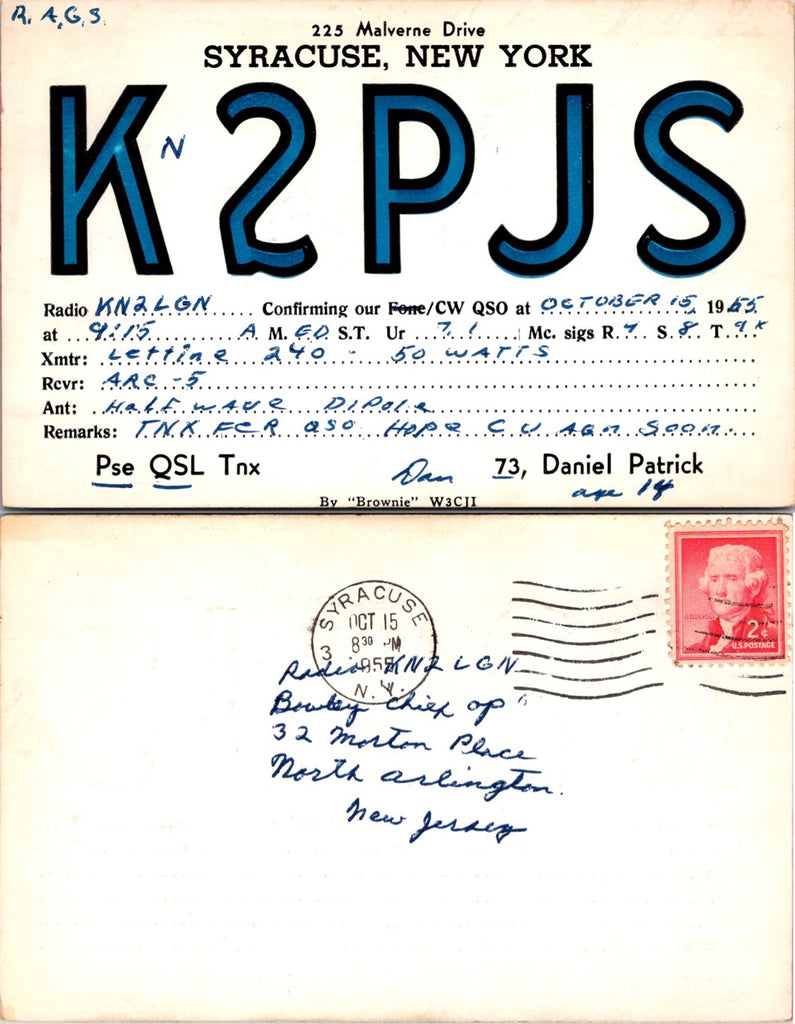 R. A. G. S.
225 Malverne Drive
SYRACUSE, NEW YORK
KN2PJS
Radio KN2LGN Confirming our Fone/CW QSO at OCTOBER 15, 1955
at 9:15 A M. ED S.T. Ur 7.1 Mc. sigs R. 7 S. 8 T. 9x
Xmtr: Lettine 240 - 50 WATTS
Rcvr: ARC-5
Ant: Half wave Dipole
Remarks: TNX FER QSO Hope C U AGn Soon.
Pse QSL Tnx Dan 73, Daniel Patrick
age 14
By "Brownie" W3CJI
SYRACUSE
OCT 15
8 30 PM
3 1955
N. Y.
JEFFERSON
2¢
U.S. POSTAGE
Radio KN2LGN
Bowley Chief op
32 Morton Place
North Arlington.
New Jersey